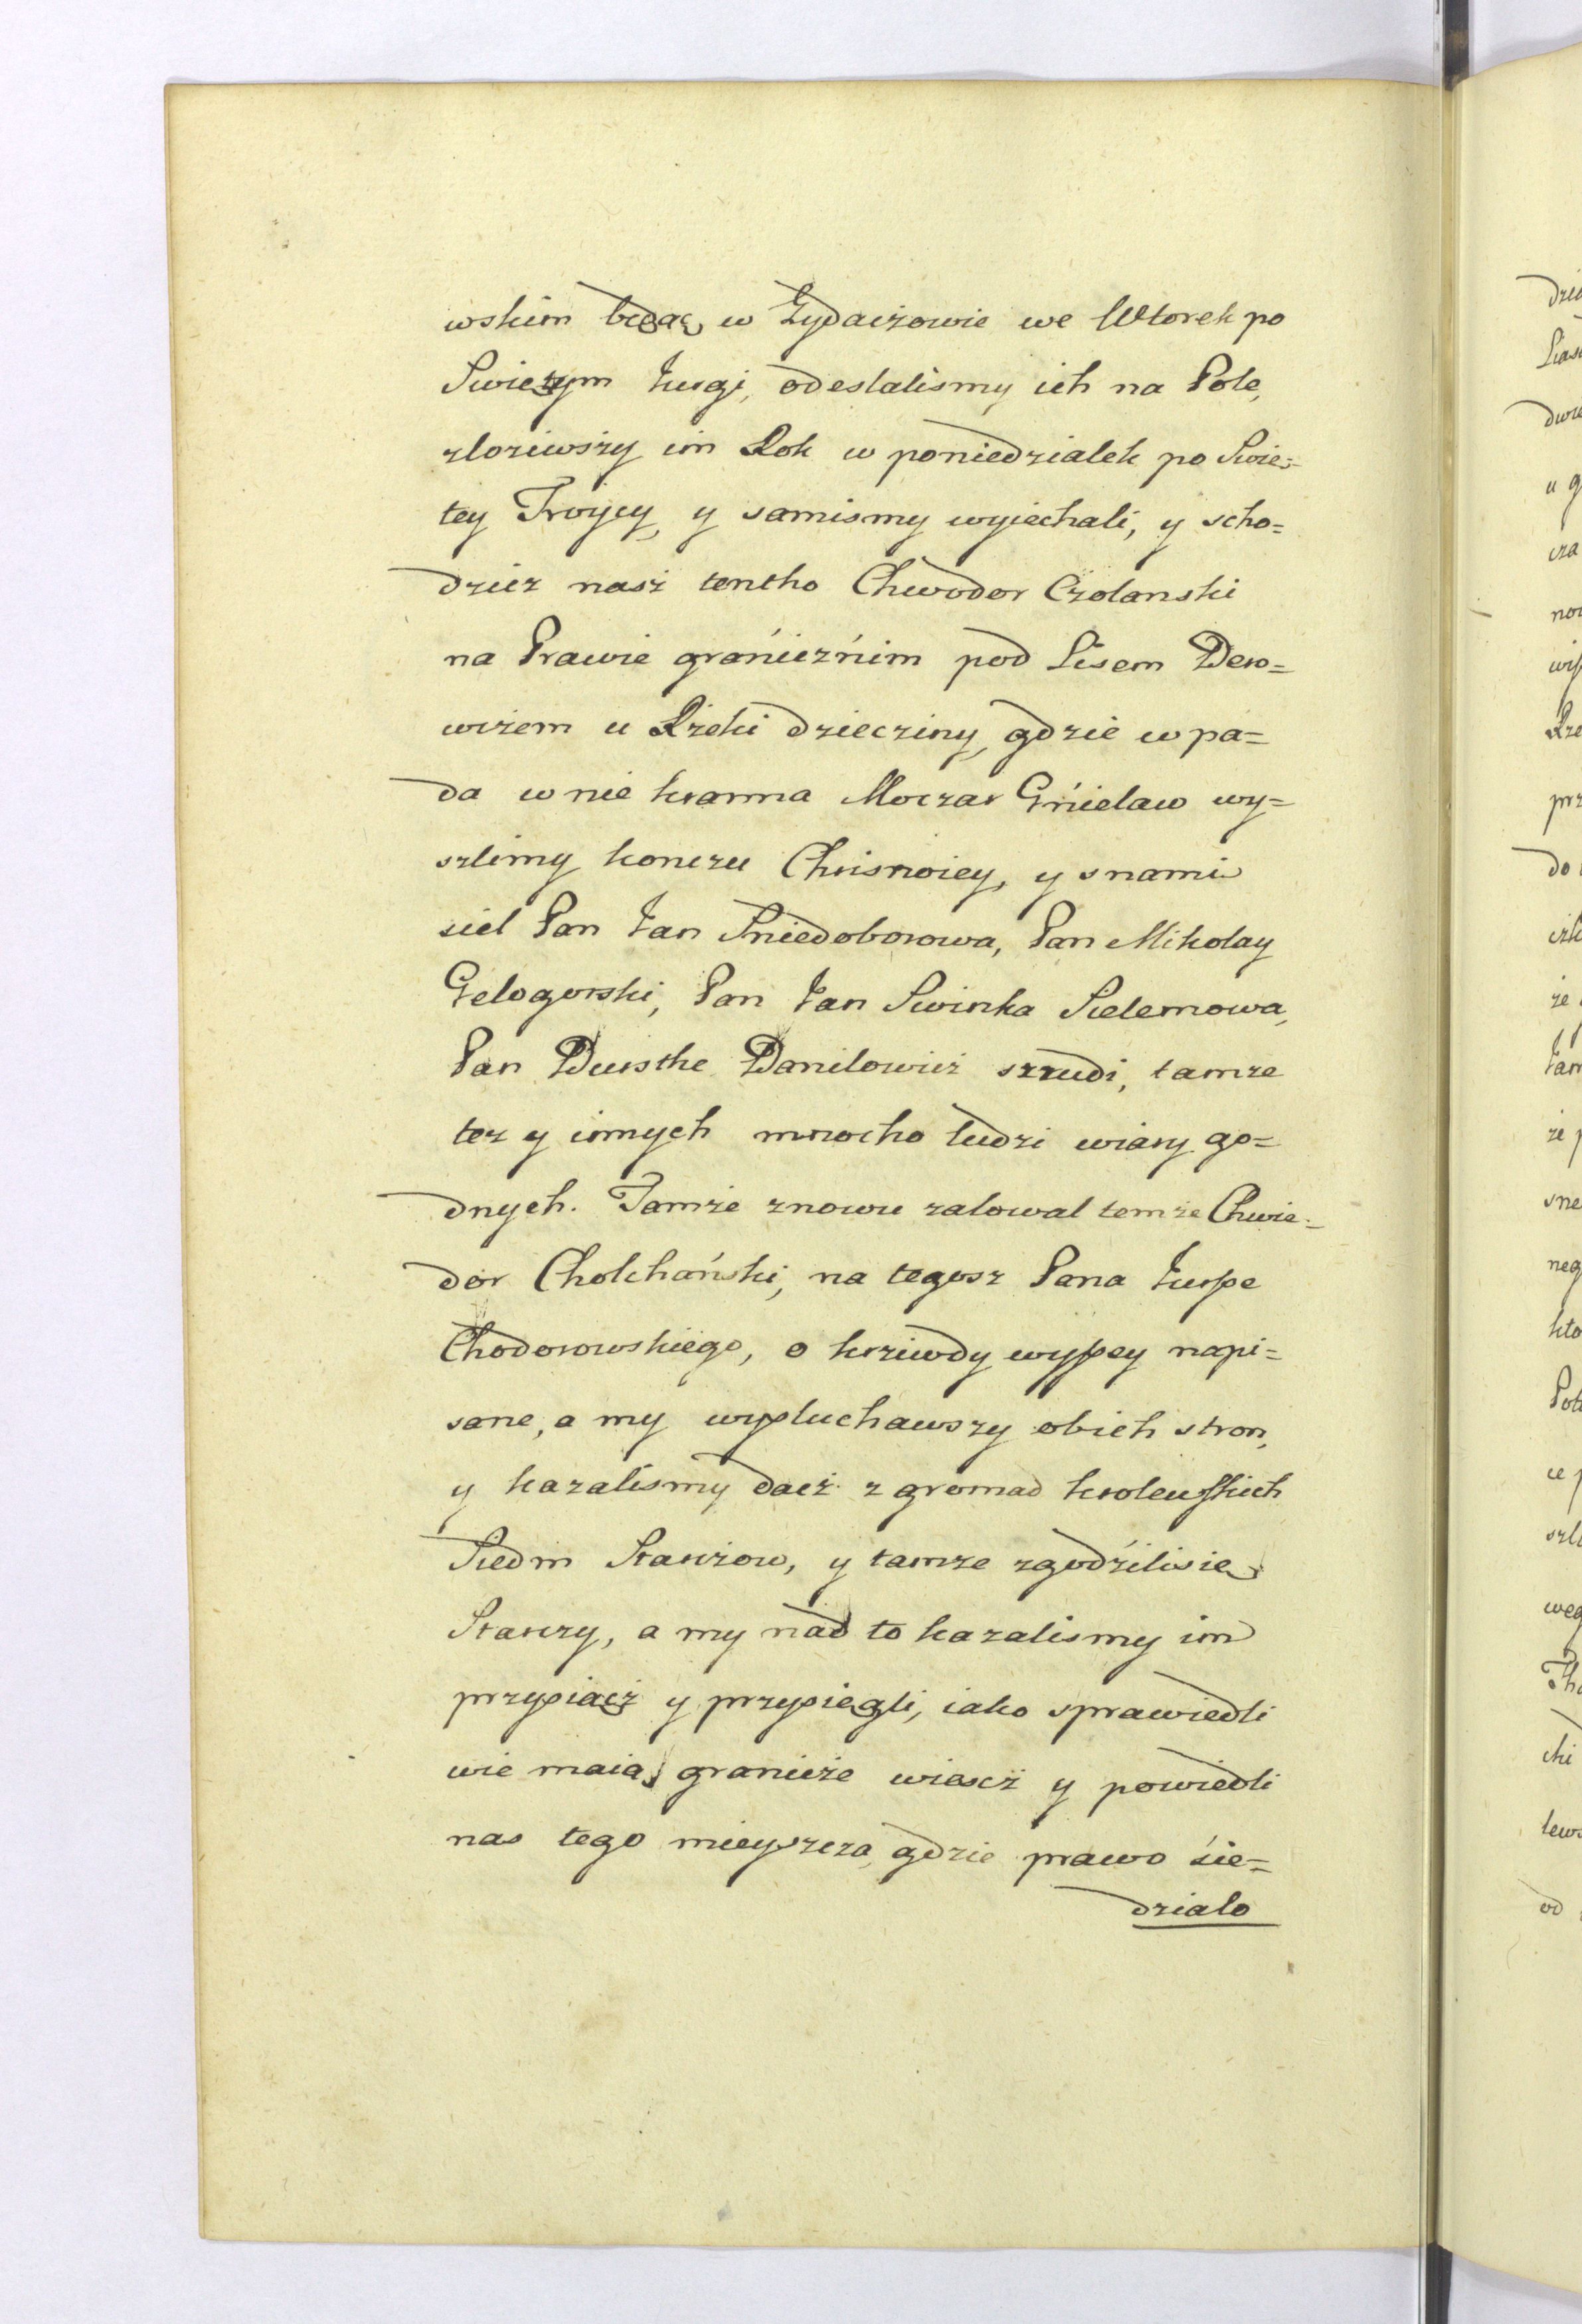 wskim będąc w Zydaczowie we Wtorek po
Swiętym Jurgi, odeslalismy ich na Pole,
zloziwszy im Rok w poniedzialek po Swie=
tey Troycy, y samismy wyiechali, y scho=
dziez nasz tentho Chwodor Czolanski
na Prawie granicznim pod Lisem Dero=
wizem u Rzeki dziecziny, gdzie wpa=
da w nie kranna Moczar Gnielaw wy=
szlimy konczu Chrisnoiey, y snami
siel Pan Jan Sniedoborowa, Pan Mikolay
Gelogorski, Pan Jan Swinka Sielemowa,
Pan Dursthe Danilowicz szrudi, tamze
tez y innych mnocho ludzi wiary go=
dnych. Tamze znowu zalowal temze Chwie=
dor Cholchański, na tegosz Pana Jurße
Chodorowskiego, o krziwdy wyßey napi=
sane, a my wysluchawszy obich stron,
y kazalismy dacz z gromad krolewskich
Siedm Starczow, y tamze zgodzilisie
Starczy, a my nad to kazalismy im
przysiacz y przysięgli, iako sprawiedli
wie maią granicze wiescz y powiedli
nas tego mieyszcza, gdzie prawo sie=
dzialo